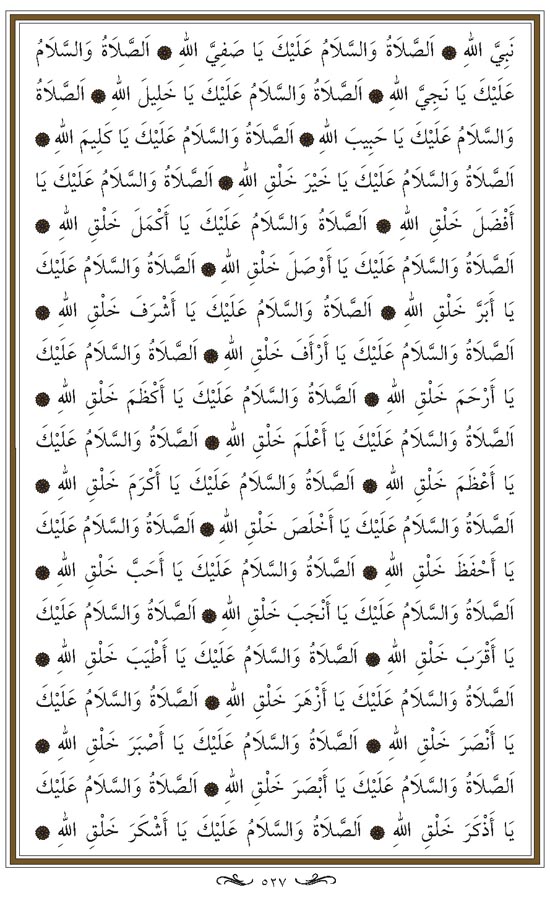 نَبِيَّ اللهِ ۞ اَلصَّلَاةُ وَالسَّلَامُ عَلَيْكَ يَا صَفِيَّ اللهِ ۞ اَلصَّلَاةُ وَالسَّلَامُ
عَلَيْكَ يَا نَجِيَّ اللهِ ۞ اَلصَّلَاةُ وَالسَّلَامُ عَلَيْكَ يَا خَلِيلَ اللهِ ۞ اَلصَّلَاةُ
وَالسَّلَامُ عَلَيْكَ يَا حَبِيبَ اللهِ ۞ اَلصَّلَاةُ وَالسَّلَامُ عَلَيْكَ يَا كَلِيمَ اللهِ ۞
اَلصَّلَاةُ وَالسَّلَامُ عَلَيْكَ يَا خَيْرَ خَلْقِ اللهِ ۞ اَلصَّلَاةُ وَالسَّلَامُ عَلَيْكَ يَا
أَفْضَلَ خَلْقِ اللهِ ۞ اَلصَّلَاةُ وَالسَّلَامُ عَلَيْكَ يَا أَكْمَلَ خَلْقِ اللهِ ۞
اَلصَّلَاةُ وَالسَّلَامُ عَلَيْكَ يَا أَوْصَلَ خَلْقِ اللهِ ۞ اَلصَّلَاةُ وَالسَّلَامُ عَلَيْكَ
يَا أَبَرَّ خَلْقِ اللهِ ۞ اَلصَّلَاةُ وَالسَّلَامُ عَلَيْكَ يَا أَشْرَفَ خَلْقِ اللهِ ۞
اَلصَّلَاةُ وَالسَّلَامُ عَلَيْكَ يَا أَرْأَفَ خَلْقِ اللهِ ۞ اَلصَّلَاةُ وَالسَّلَامُ عَلَيْكَ
يَا أَرْحَمَ خَلْقِ اللهِ ۞ اَلصَّلَاةُ وَالسَّلَامُ عَلَيْكَ يَا أَكْظَمَ خَلْقِ اللهِ ۞
اَلصَّلَاةُ وَالسَّلَامُ عَلَيْكَ يَا أَعْلَمَ خَلْقِ اللهِ ۞ اَلصَّلَاةُ وَالسَّلَامُ عَلَيْكَ
يَا أَعْظَمَ خَلْقِ اللهِ ۞ اَلصَّلَاةُ وَالسَّلَامُ عَلَيْكَ يَا أَكْرَمَ خَلْقِ اللهِ ۞
اَلصَّلَاةُ وَالسَّلَامُ عَلَيْكَ يَا أَخْلَصَ خَلْقِ اللهِ ۞ اَلصَّلَاةُ وَالسَّلَامُ عَلَيْكَ
يَا أَحْفَظَ خَلْقِ اللهِ ۞ اَلصَّلَاةُ وَالسَّلَامُ عَلَيْكَ يَا أَحَبَّ خَلْقِ اللهِ ۞
اَلصَّلَاةُ وَالسَّلَامُ عَلَيْكَ يَا أَنْجَبَ خَلْقِ اللهِ ۞ اَلصَّلَاةُ وَالسَّلَامُ عَلَيْكَ
يَا أَقْرَبَ خَلْقِ اللهِ ۞ اَلصَّلَاةُ وَالسَّلَامُ عَلَيْكَ يَا أَطْيَبَ خَلْقِ اللهِ ۞
اَلصَّلَاةُ وَالسَّلَامُ عَلَيْكَ يَا أَزْهَرَ خَلْقِ اللهِ ۞ اَلصَّلَاةُ وَالسَّلَامُ عَلَيْكَ
يَا أَنْصَرَ خَلْقِ اللهِ ۞ اَلصَّلَاةُ وَالسَّلَامُ عَلَيْكَ يَا أَصْبَرَ خَلْقِ اللهِ ۞
اَلصَّلَاةُ وَالسَّلَامُ عَلَيْكَ يَا أَبْصَرَ خَلْقِ اللهِ ۞ اَلصَّلَاةُ وَالسَّلَامُ عَلَيْكَ
يَا أَذْكَرَ خَلْقِ اللهِ ۞ اَلصَّلَاةُ وَالسَّلَامُ عَلَيْكَ يَا أَشْكَرَ خَلْقِ اللهِ ۞
٥٢٧